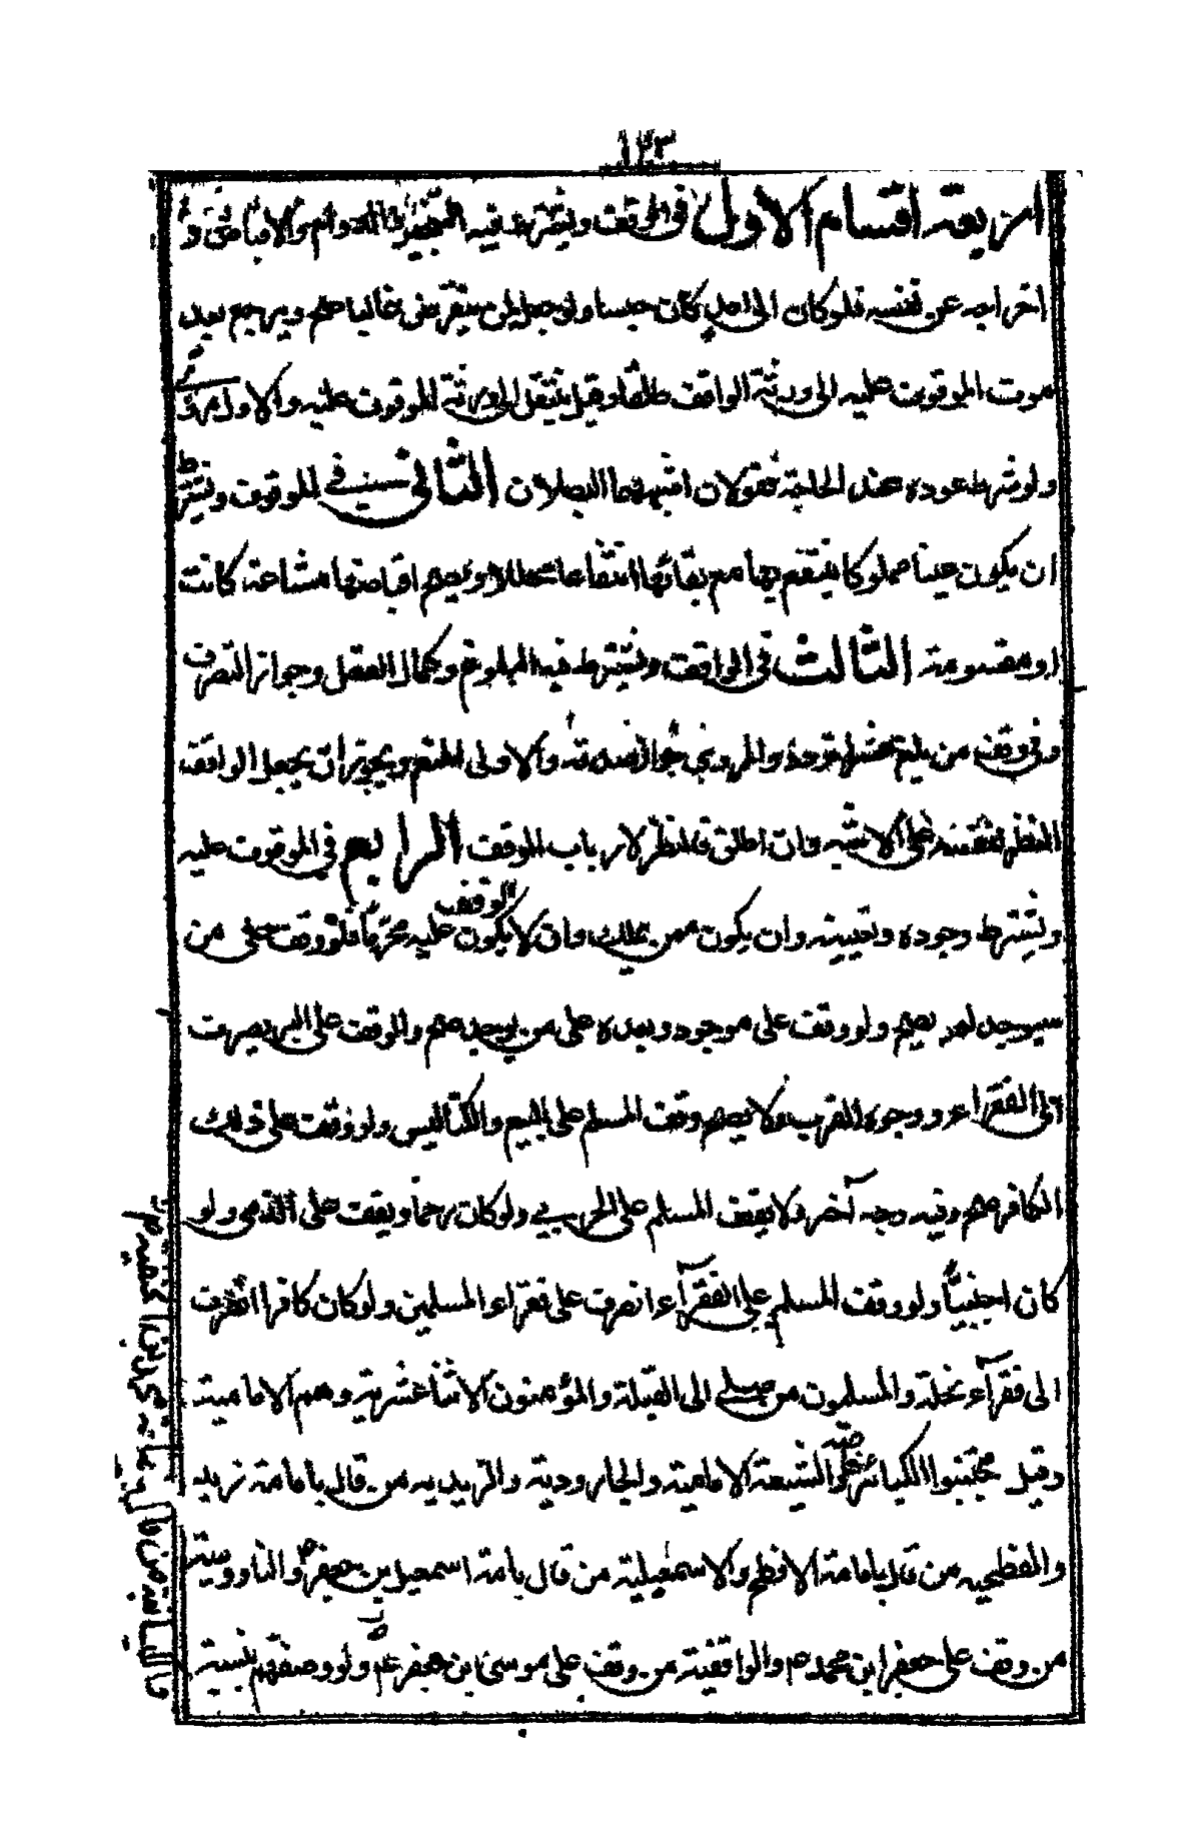 ١٢٣
اربعة اقسام الاول في الوقف ويشترط فيه التنجيز والدوام والاقباض و
اخراجه عن نفسه فلو كان الى امد كان حبسا ولو جعل لمن ينقرض غالبا صح ويرجع بعد
موت الموقوف عليه الى ورثة الواقف طلقا وقيل ينتقل الى ورثة الموقوف عليه والاول مروى
ولو شرط عوده عند الحاجة فقولان اشبههما البطلان الثاني في الموقوف ويشترط
ان يكون عينا مملوكا ينتفع بها مع بقائها انتفاعا محللا ويصح اقباضها مشاعة كانت
او مقسومة الثالث في الواقف ويشترط فيه البلوغ وكمال العقل وجواز التصرف
وفي وقف من بلغ عشرا تردد والمروي جواز صدقته والاولى المنع ويجوز ان يجعل الواقف
النظر لنفسه على الاشبه وان اطلق فالنظر لارباب الوقف الرابع في الموقوف عليه
ويشترط وجوده وتعيينه وان يكون ممن يملك وان لا يكون الوقف عليه محرما فلو وقف على من
سيوجد لم يصح ولو وقف على موجود وبعده على من يوجد صح والوقف على البر يصرف
الى الفقراء ووجوه القرب ولا يصح وقف المسلم على البيع والكنائس ولو وقف على ذلك
الكافر صح وفيه وجه آخر ولا يقف المسلم على الحربي ولو كان رحما ويقف على الذمي ولو
كان اجنبيا ولو وقف المسلم على الفقرآء انصرف على فقراء المسلمين ولو كان كافرا انصرف
الى فقرآء نحلته والمسلمون من صلى الى القبلة والمؤمنون الاثنا عشرية وهم الامامية
وقيل مجتنبوا الكبائر خاصة والشيعة الامامية والجارودية والزيديه من قال بامامة زيد
والفطحيه من قال بامامة الافطح والاسمعيلية من قال بامامة اسمعيل بن جعفر والناووسية
من وقف على جعفر ابن محمد ع والواقفية من وقف على موسى ابن جعفر ع ولو وصفهم بنسبة